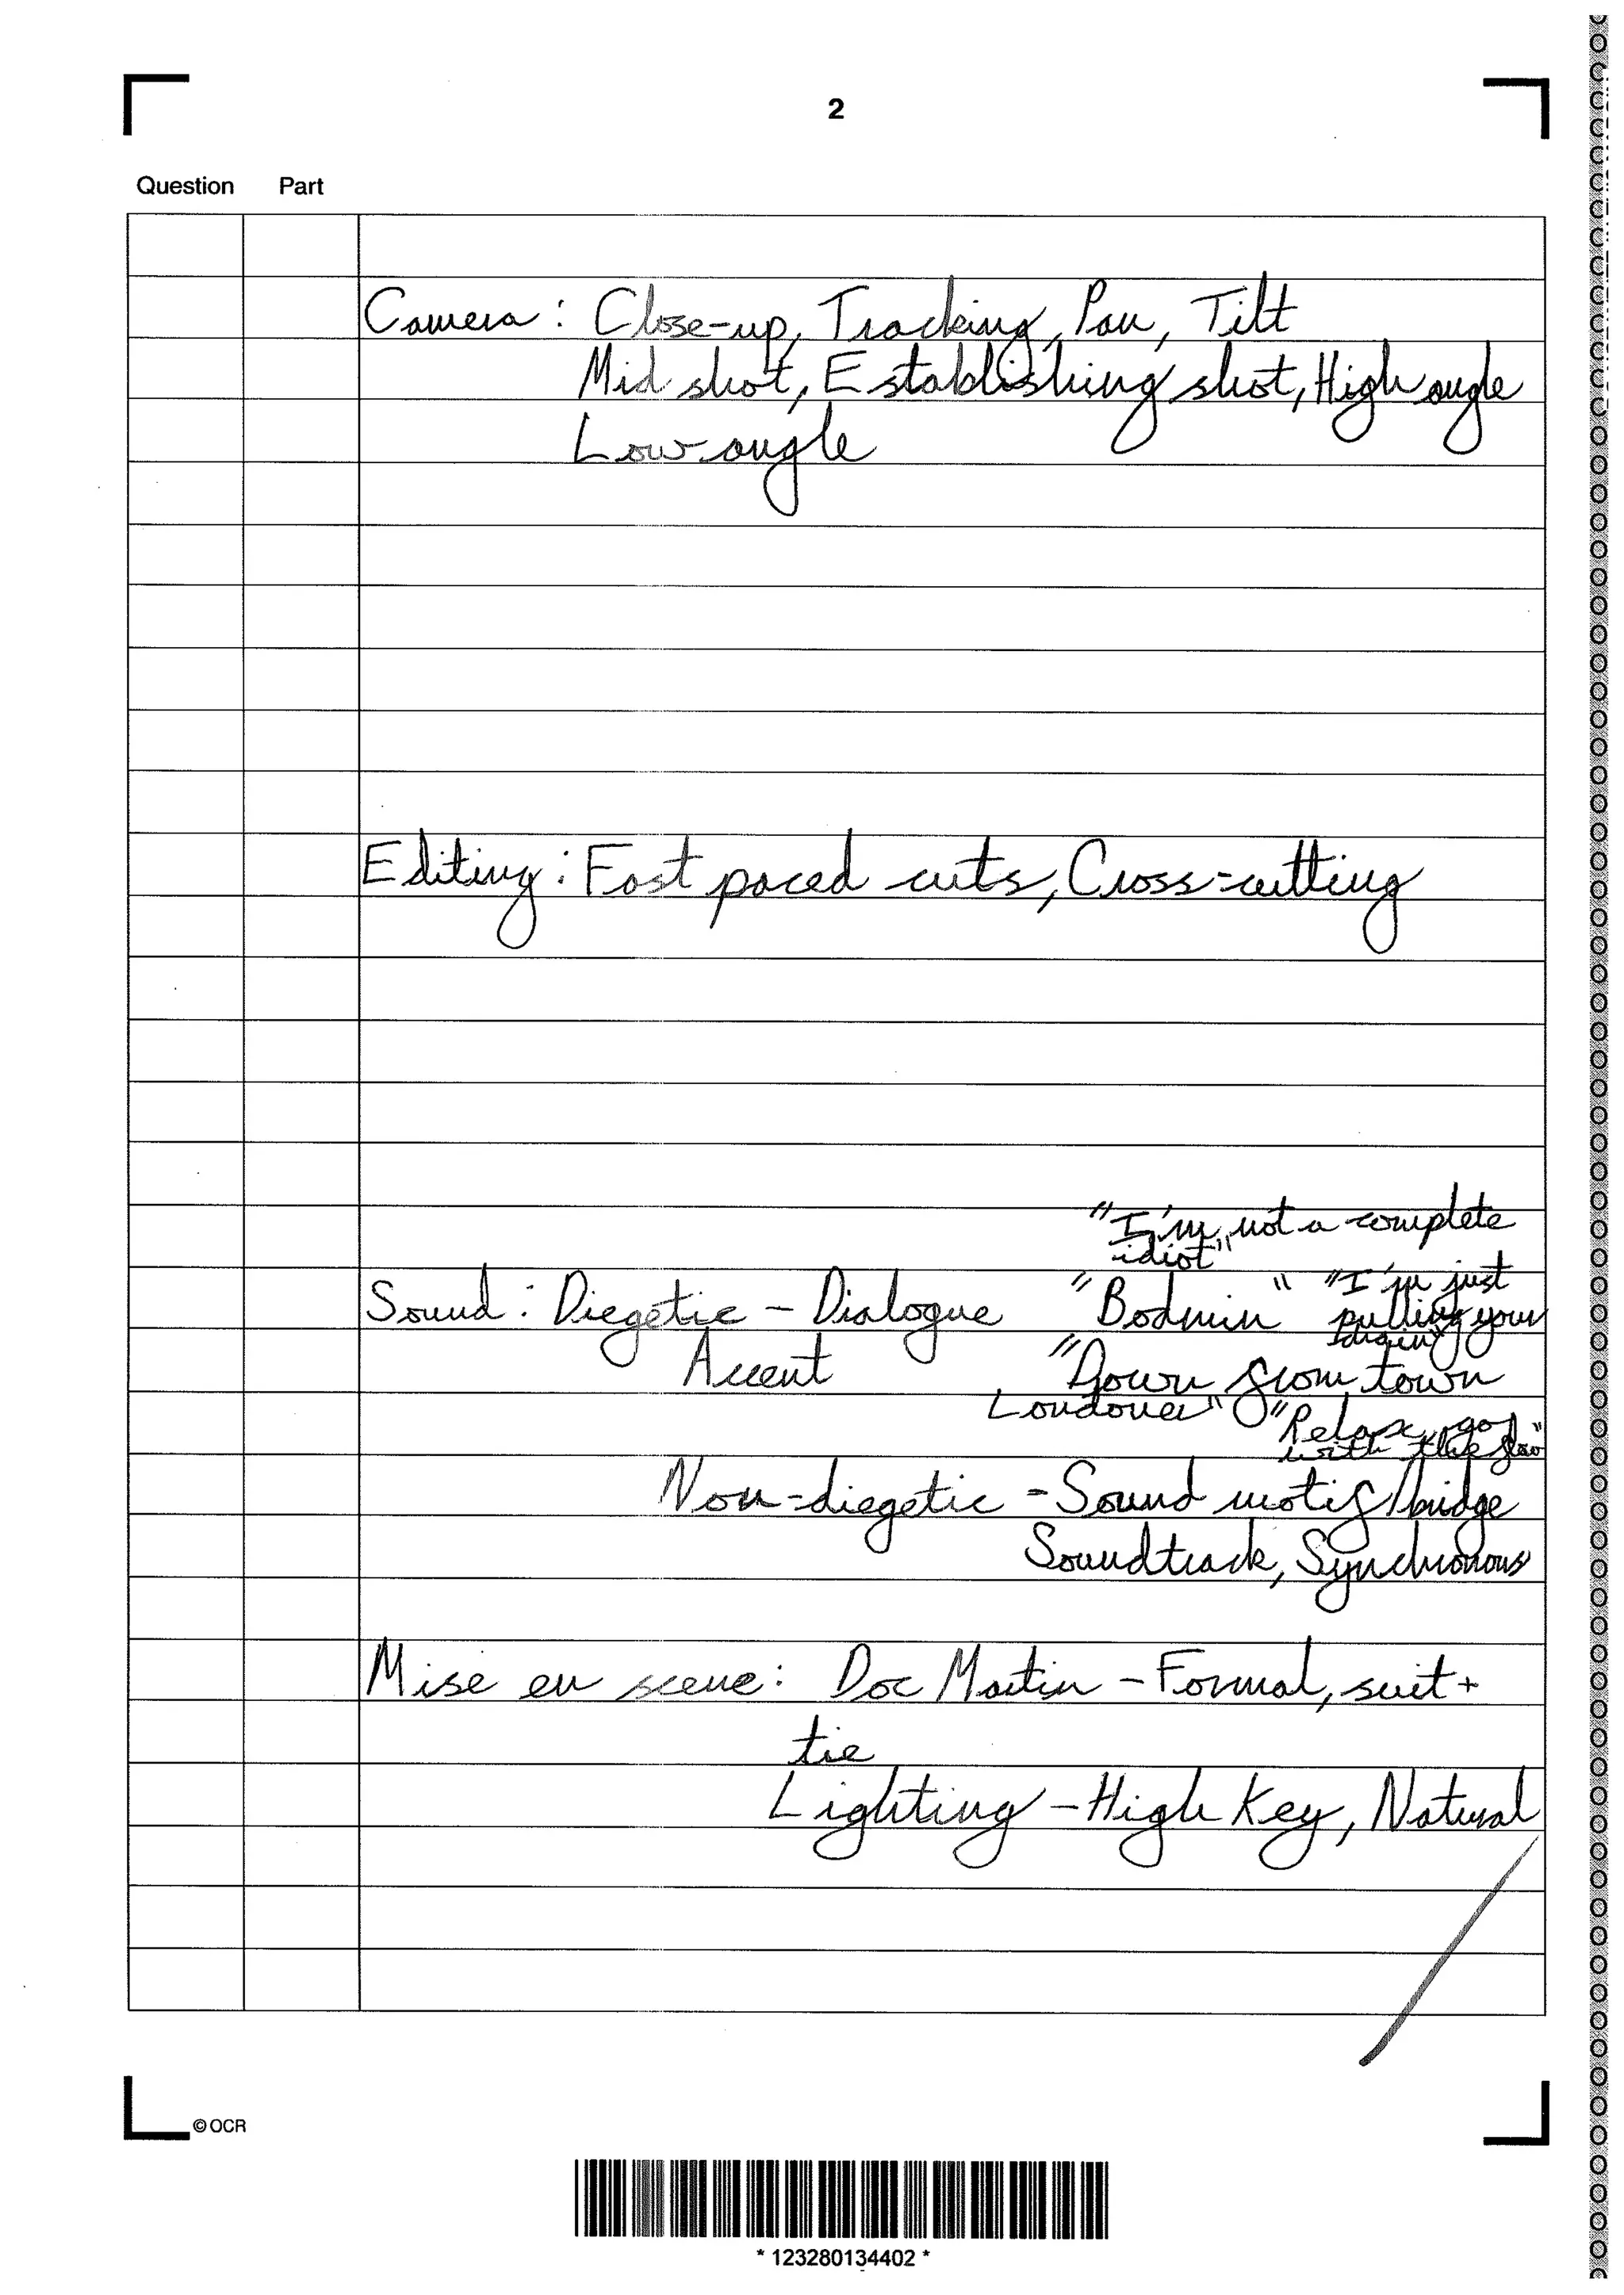 2
Question Part
Camera: Close-up, Tracking, Pan, Tilt
Mid shot, Establishing shot, High angle
Low angle
Editing: Fast paced cuts, Cross-cutting
"I'm not a complete
idiot"
Sound: Diegetic - Dialogue "Bodmin" "I'm just
pulling your
chain"
Accent "Down from town
Londoner" "Relax, go
with the flow"
Non-diegetic - Sound motif/bridge
Soundtrack, Synchronous
Mise en scene: Doc Martin - Formal, suit +
tie
Lighting - High Key, Natural
© OCR
* 123280134402 *